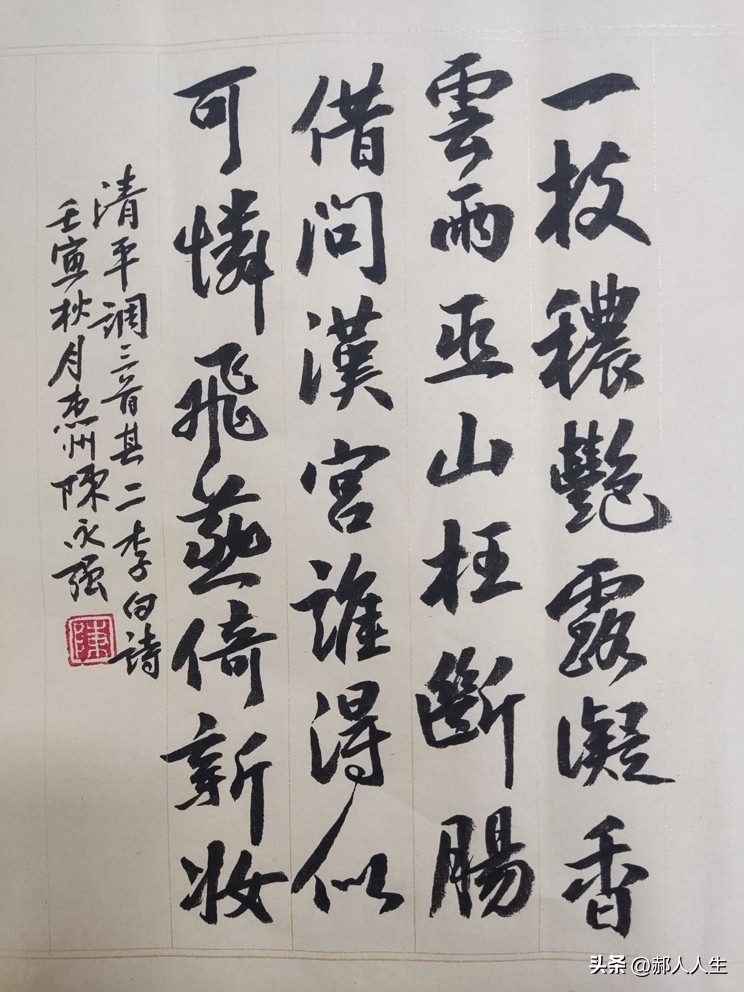 一枝穠艷露凝香
雲雨巫山枉斷腸
借問漢宮誰得似
可憐飛燕倚新妝
清平调三首其二李白詩
壬寅秋月惠州陳永强
陳
头条 @郝人人生